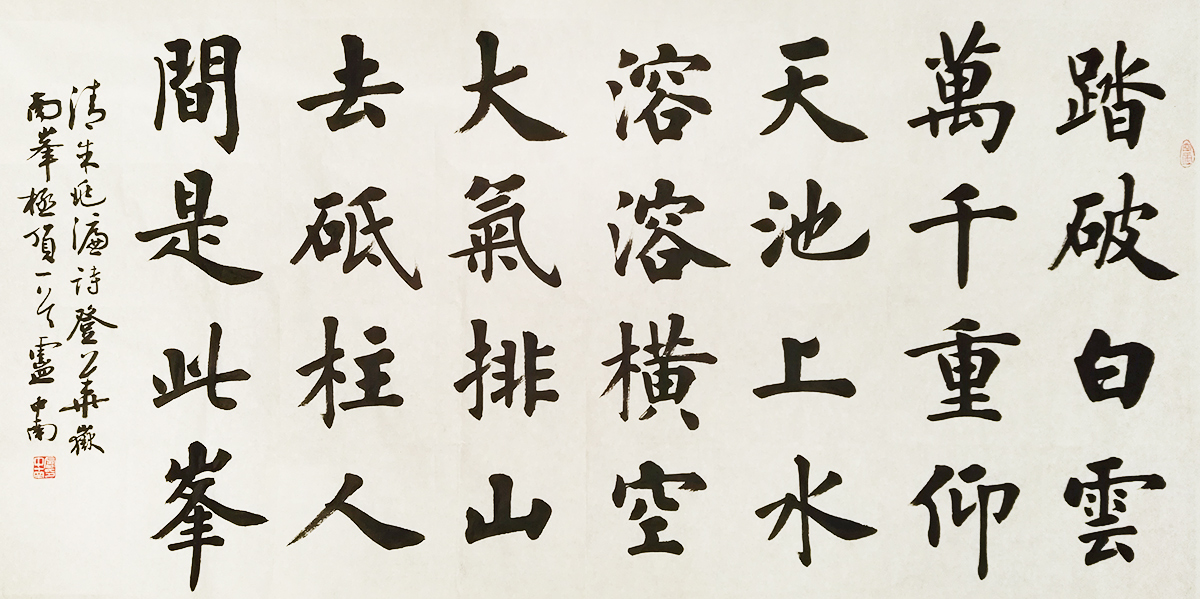 踏破白雲
萬千重仰
天池上水
溶溶橫空
大氣排山
去砥柱人
間是此峯
清朱廷濂詩登華嶽
南峯極頂一首盧中南